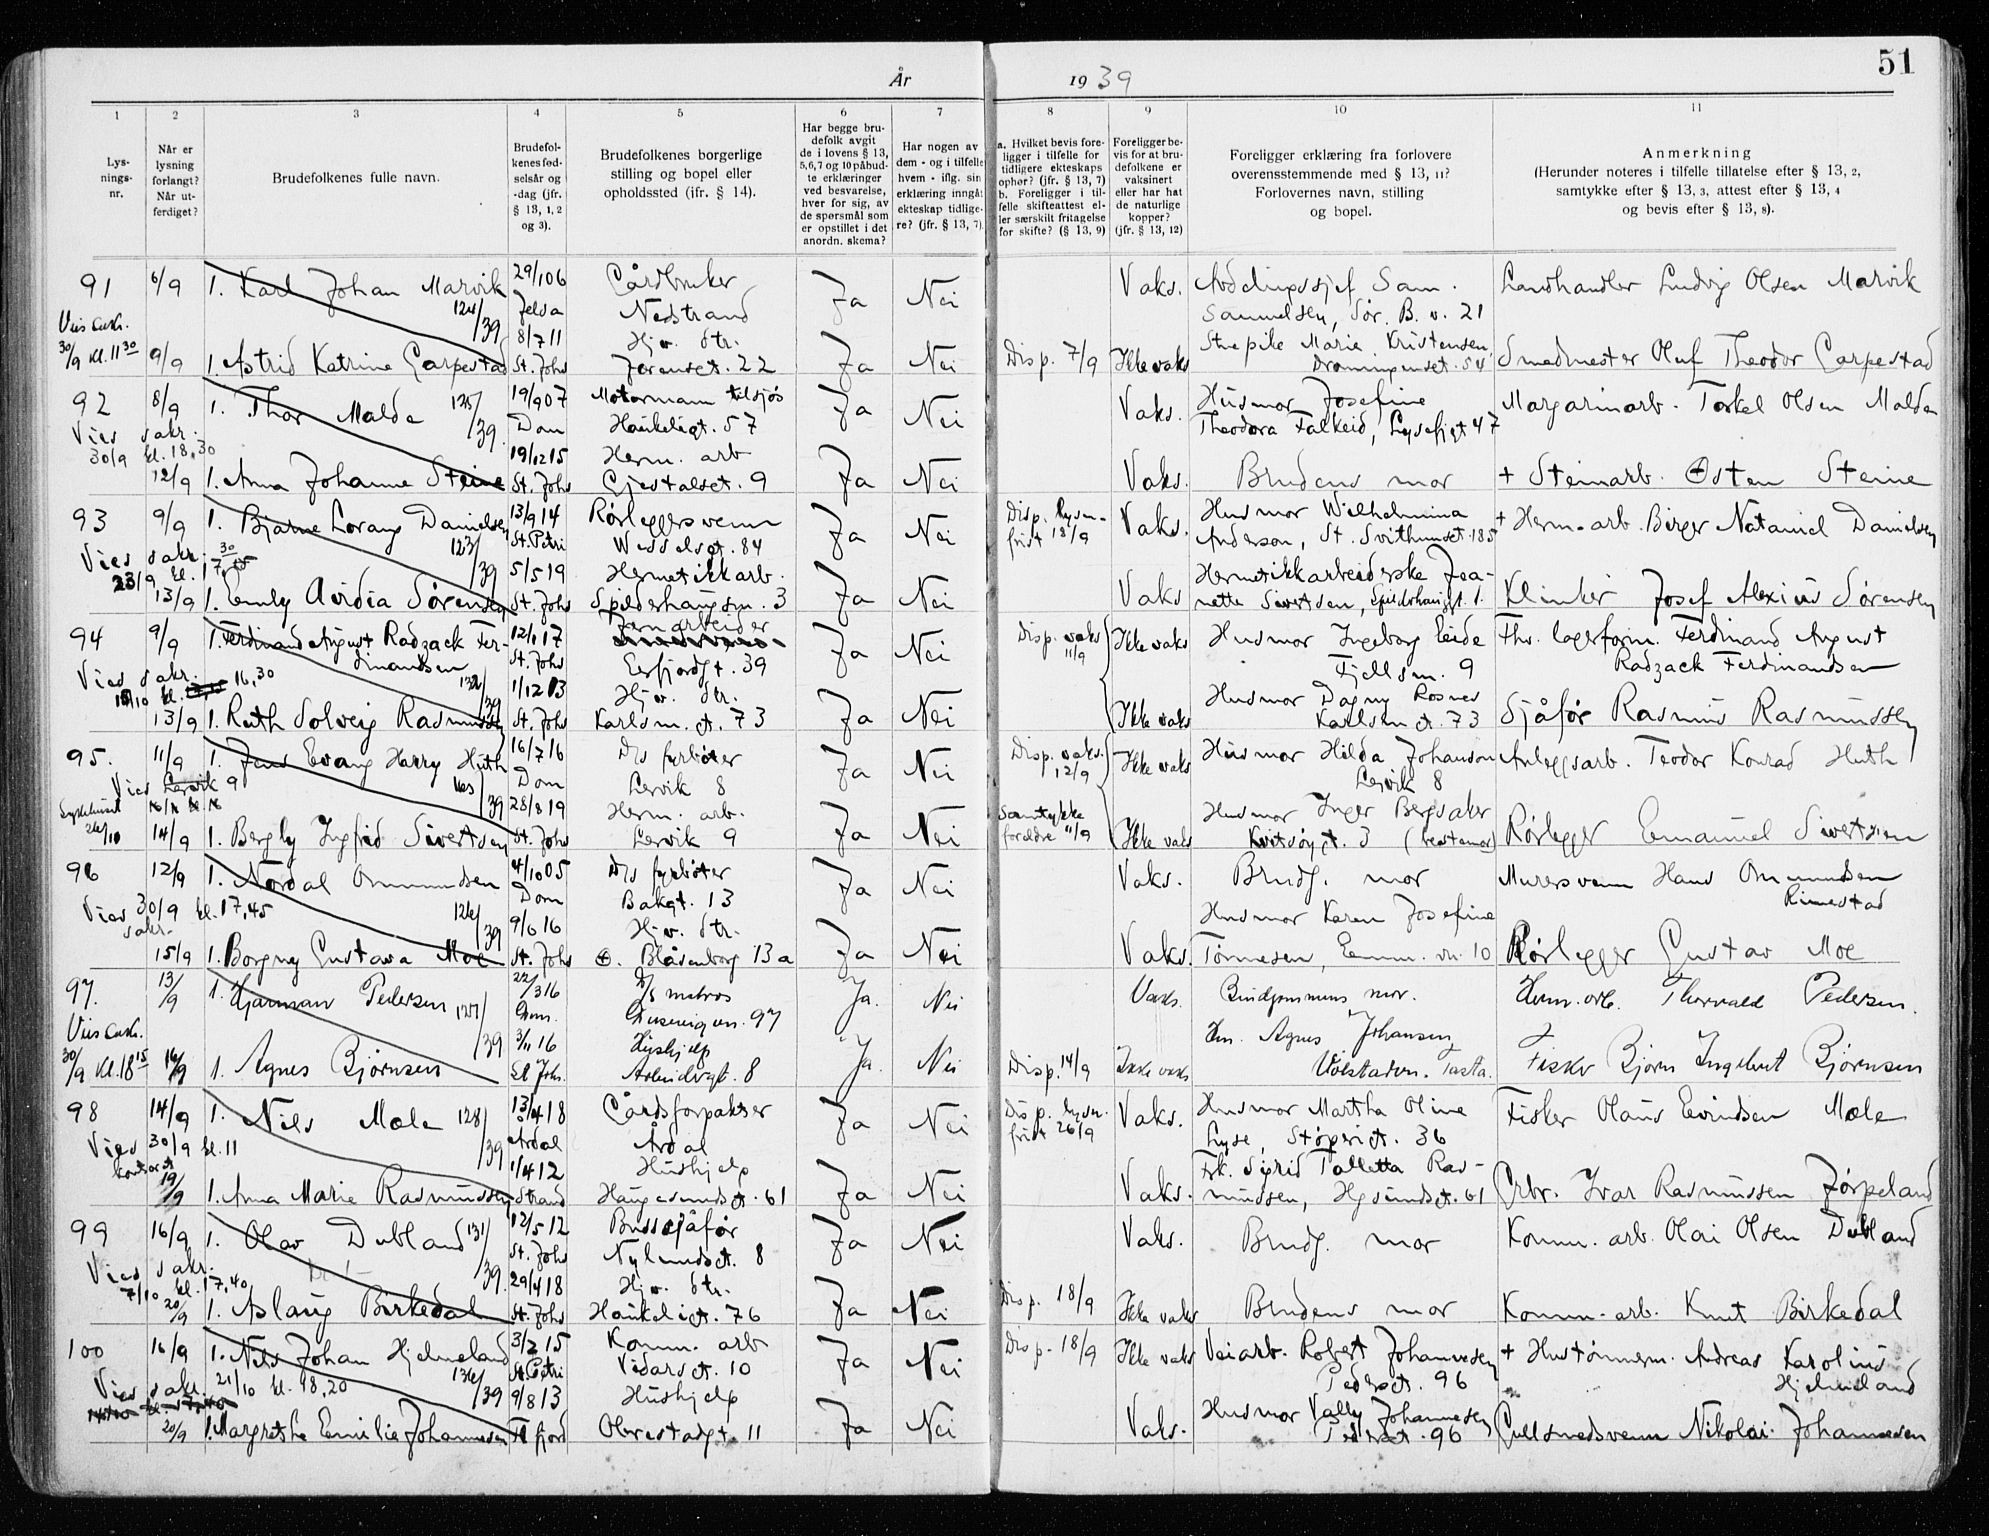 51
År 1939
1 2 3 4 5 6 7 8 9 10 11
Lysningsnr.
Når er lysning forlangt? Når utferdiget?
Brudefolkenes fulle navn.
Brudefolkenes fødselsår og -dag (jfr. § 13, 1, 2 og 3).
Brudefolkenes borgerlige stilling og bopel eller opholdssted (ifr. § 14).
Har begge brudefolk avgit de i lovens § 13, 5,6,7 og 10 påbudte erklæringer ved besvarelse, hver for sig, av de spørsmål som er opstillet i det anordn. skema?
Har nogen av dem - og i tilfelle hvem - iflg. sin erklæring inngåt ekteskap tidligere? (jfr. § 13, 7)
a. Hvilket bevis foreligger i tilfelle for tidligere ekteskaps ophør? (jfr. § 13, 7) b. Foreligger i tilfelle skifteattest eller særskilt fritagelse for skifte? (§ 13, 9)
Foreligger bevis for at brudefolkene er vaksinert eller har hat de naturlige kopper? (jfr. § 13, 12)
Foreligger erklæring fra forlovere overensstemmende med § 13, 11? Forlovernes navn, stilling og bopel.
Anmerkning (Herunder noteres i tilfelle tillatelse efter § 13, 2, samtykke efter § 13, 3, attest efter § 13, 4 og bevis efter § 13, 8).
91 6/9 1. Karl Johan Marvik 29/1 06 Gårdbruker Ja Nei Vaks. Avdelingssjef Sam. Landhandler Ludvig Olsen Marvik
124/39 Jelsa Nedstrand Samuelsen, Sør. B. v. 21
30/9 kl. 11 30 8/7 11 Hj.v. str. Marie Kristensen,
9/9 1. Astrid Katrine Carpestad St. Johs Jorenset. 22 Ja Nei Disp. 7/9 Ikke vaks Dronningenset. 54 Smedmester Oluf Theodor Carpestad
92 8/9 1. Thor Malde 125/39 19/9 07 Motormann tilsjøs Ja Nei Vaks. Husmor Josefine Margarinarb. Torkel Olsen Malde
Vies sakr. Dom Haukeligt. 57 Theodora Falkeid, Lysefjgt 47
30/9 kl. 18,30 19/12 15 Herm. arb
12/9 1. Anna Johanne Steine St. Johs Gjestalset. 9 Ja Nei Vaks. Brudens mor + Steinarb. Østen Steine
93 9/9 1. Bjarne Lorang Danielsen 13/9 14 Rørleggersvenn Ja Nei Disp. lysn.- Vaks. Husmor Wilhelmina + Herm.-arb. Birger Nataniel Danielsen
Vies sakr. 123/39 St. Petri Wesselsgt. 84 frist 18/9 Anderson, St. Svithunset. 185
23/9 kl. 17,30 5/5 19 Hermetikkarb. Hermetikkarbeiderske Jea-
13/9 1. Emly Aidia Sørensen St. Johs Spilderhaugsm. 3 Ja Nei Vaks nette Sivertsen, Spilderhaugvt. 1. Klinker Josef Alexius Sørensen
94 9/9 1. Ferdinand August Radzack Fer- 12/1 17 Jernarbeider Ja Nei Disp. vaks Ikke vaks Husmor Ingeborg Eide Fhv. lagerform. Ferdinand August
dinandsen St. Johs Erfjordgt. 39 11/9 Fjellsm. 9 Radzack Ferdinandsen
Vies sakr. 132/39 1/12 13 Hj.v. str. Husmor Dagny Rosnes
kl. 16,30
13/9 1. Ruth Solveig Rasmussen St. Johs Karlsm. gt. 73 Ja Nei Ikke vaks Karlsm gt. 73 Sjåfør Rasmus Rasmussen
95. 11/9 1. Jens Evang Harry Huth 16/7 16 D/s fyrbøter Ja Nei Disp. vaks. Ikke vaks Husmor Hilda Johanson Anleggsarb. Teodor Konrad Huth
Vies Lervik 9 Dom Lervik 8 12/9 Lervik 8
Sykehuset 28/8 19 Herm. arb. Samtykke Husmor Inger Bergsaker
14/9 1. Bergly Ingfrid Sivertsen St. Johs Lervik 9 Ja Nei foreldre 11/9 Ikke vaks Kvitsøygt. 3 (bestemor) Rørlegger Emanuel Sivertsen
96 12/9 1. Nordal Ommundsen 4/10 05 D/s fyrbøter Ja Nei Vaks. Brudg. mor Murersvenn Hans Ommundsen
Vies 30/9 kl. 17,45 126/39 Dom Bakgt. 13 Rimestad
sakr. 9/6 16 Hj.v. str. Husmor Karen Josefine
15/9 1. Borgny Gustava Moe St. Johs Ø. Blåsenborg 13a Ja Nei Vaks. Tønnesen, Emm. vn. 10 Rørlegger Gustav Moe
97. 13/9 1. Hjarman Pedersen 127/39 22/3 16 D/s matros Ja. Nei Vaks. Brudgommens mor. Herm. arb. Thorvald Pedersen.
30/9 Kl. 18 15 3/11 16 Hushjelp Agnes Johansen,
16/9 1. Agnes Bjørnsen St Johs. 8 Ja. Nei Disp. 14/9 Ikke vaks Tasta. Fisker Bjørn Ingebret Bjørnsen
98 14/9 1. Nils Mæle 128/39 13/4 18 Gårdsforpakter Ja Nei Disp. lysn. Vaks. Husmor Martha Oline Fisker Olaus Eivindsen Mæle
Vies 30/9 kl. 11 Årdal Årdal frist 26/9 Lyse, Støperigt. 36
kontoret 1/4 12 Hushjelp Frk. Sigrid Talletta Ras-
19/9 1. Anna Marie Rasmussen Strand Haugesundsgt. 61 Ja Nei Vaks. mussen, Hgsundsgt. 61 Grbr. Ivar Rasmussen Jørpeland
99 16/9 1. Olav Dubland 131/39 12/5 12 Bussjåfør Ja Nei Vaks. Brudg. mor Komm. arb. Olai Olsen Dubland
Vies sakr. St. Johs Nylundsgt. 8
7/10 kl. 17,40 29/4 18 Hj.v. str.
20/9 1. Aslaug Birkedal St. Johs Haukeligt. 76 Ja Nei Disp. 18/9 Ikke vaks Brudens mor Komm.-arb. Knut Birkedal
100 16/9 1. Nils Johan Hjelmeland 3/2 15 Komm. arb Ja Nei Disp. 18/9 Ikke vaks Veiarb. Robert Johannesen + Hustømmerm. Andreas Karolius
Vies sakr. 21/10 kl. 18,20 136/39 St. Petri Vidarsgt. 10 Pedersgt. 96 Hjelmeland
9/8 13 Hushjelp Husmor Vally Johannesen
20/9 1. Margrethe Emilie Johannesen Fl fjord Ølbrestadgt. 11 Ja Nei Vaks. Pedersgt. 96 Gullsmedsvenn Nikolai Johannesen